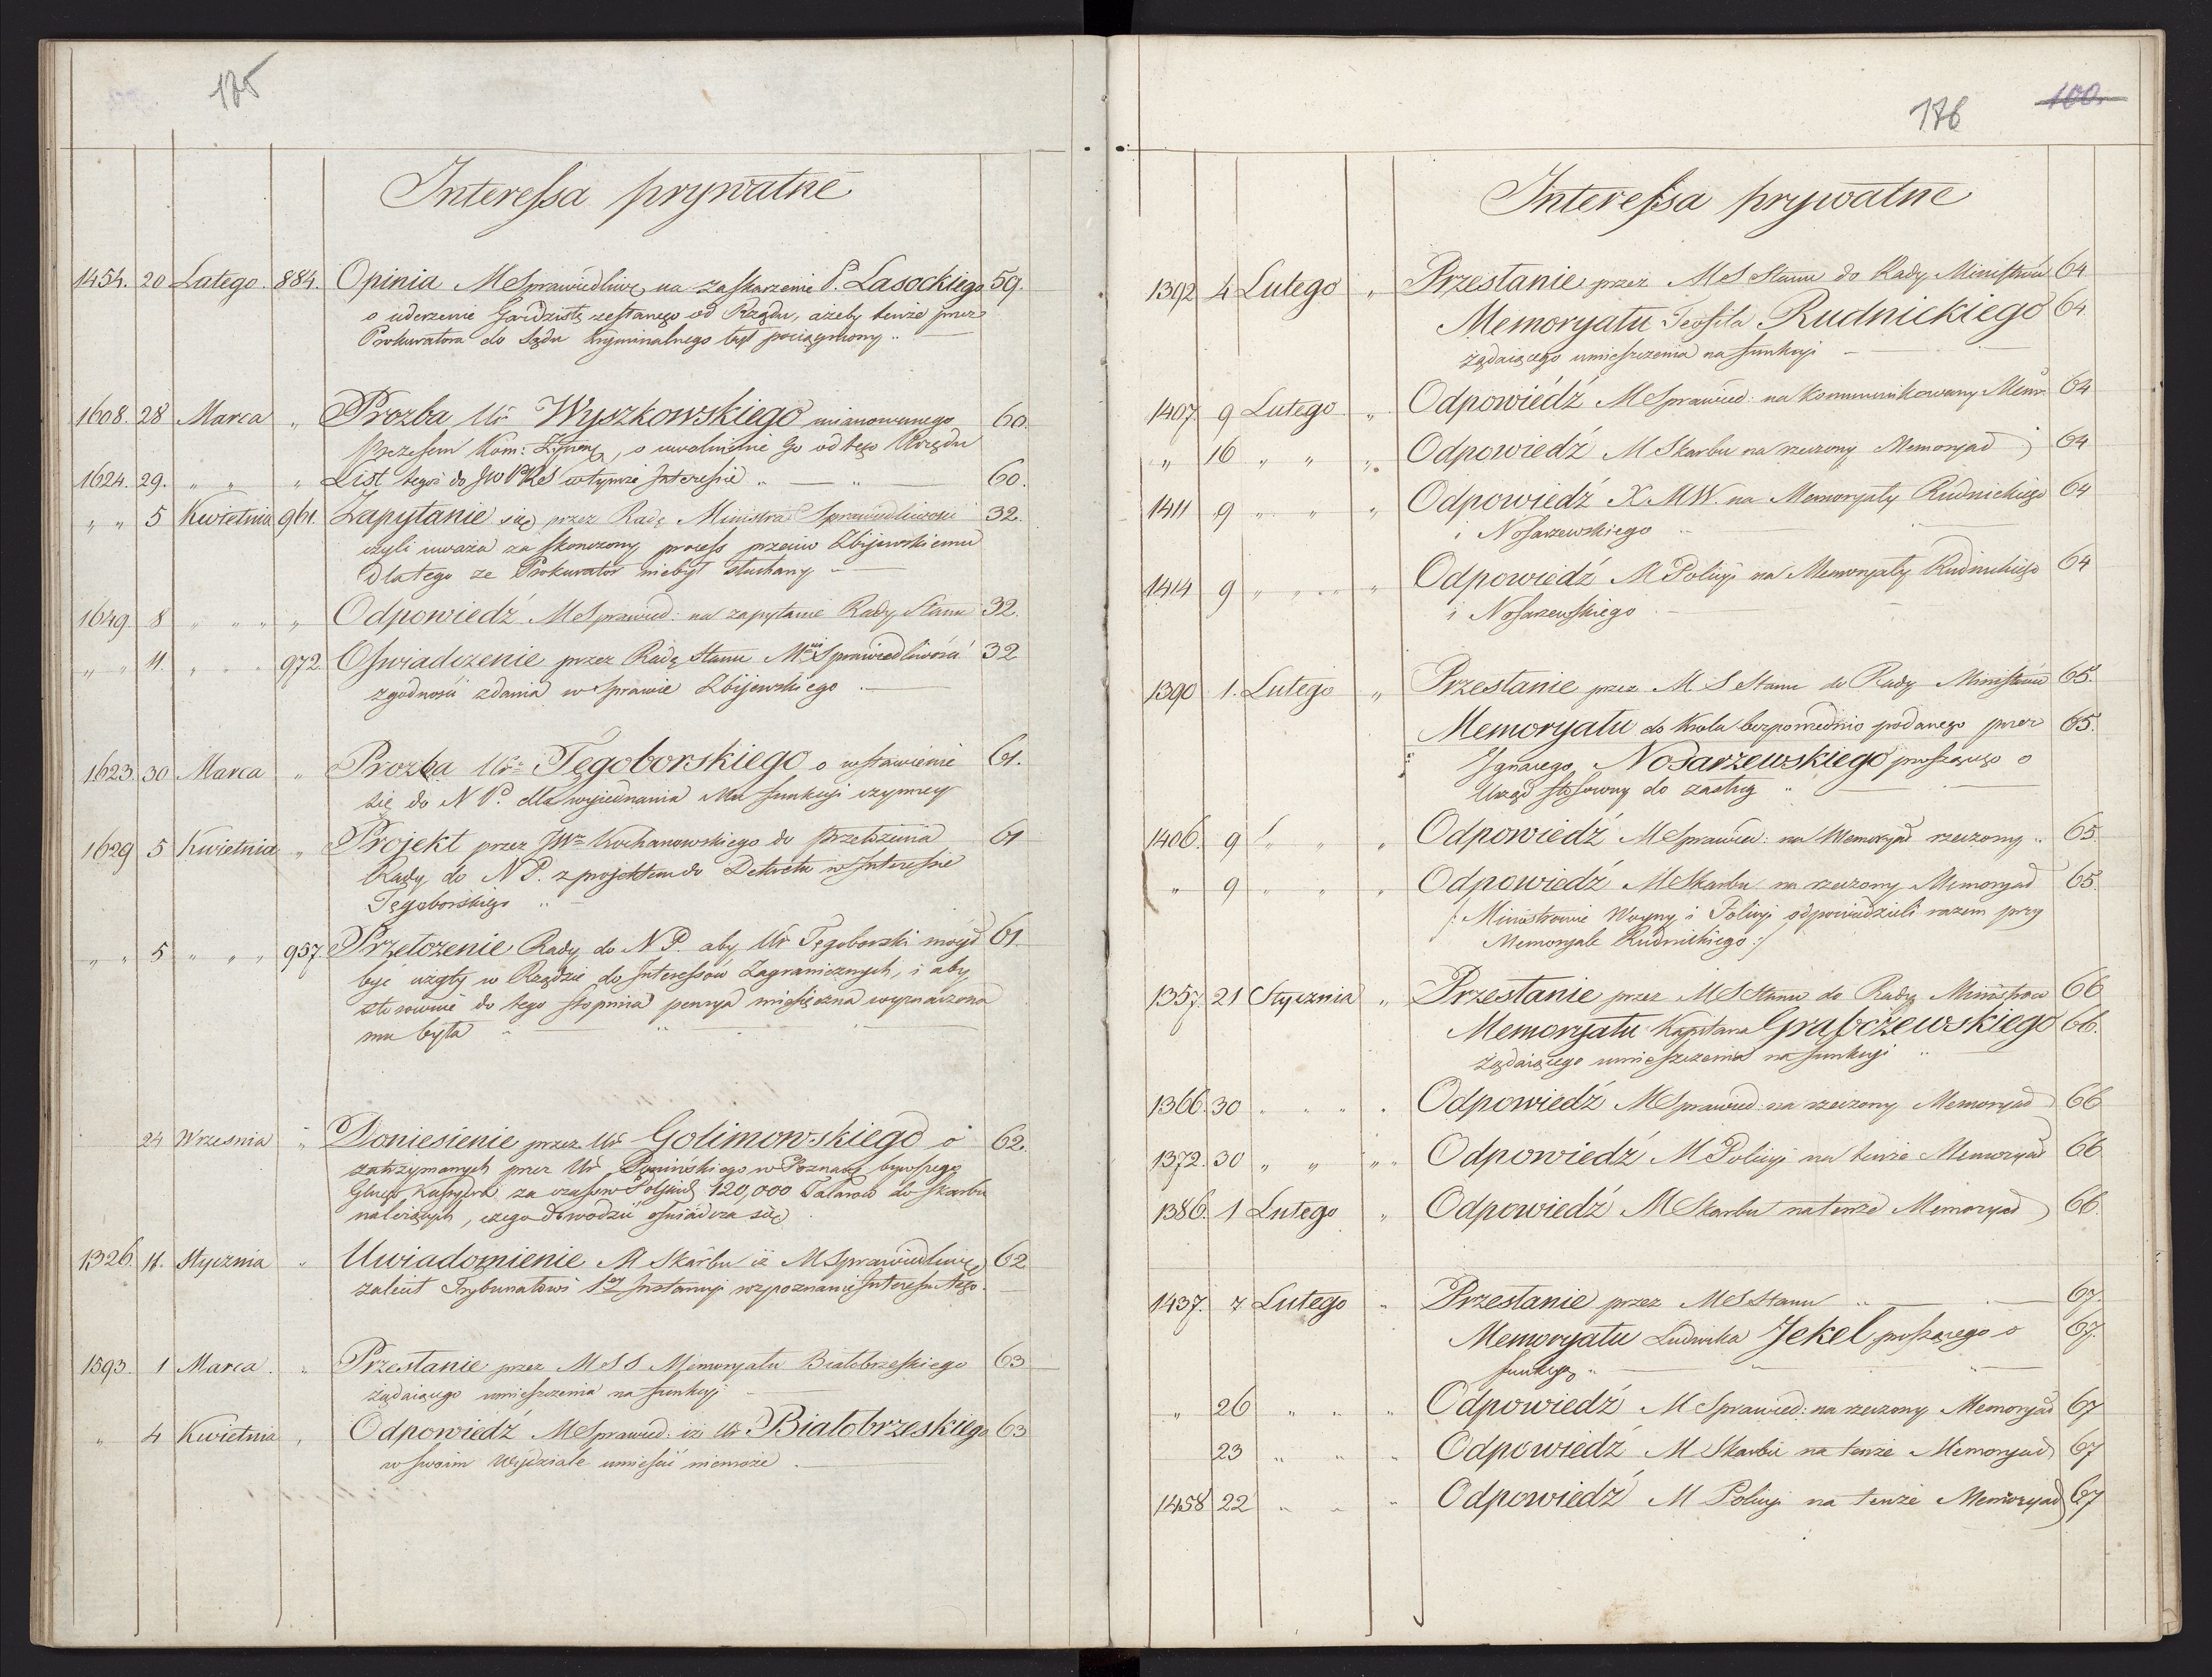 175
Interessa prywatne
1454. 20 Lutego. 884. Opinia MSprawiedliwę na zaskarzenie P. Lasockiego 59.
o uderzenie Gwardzistę zesłanego od Rządu, ażeby tenże przez
Prokuratora do Sądu Kryminalnego był pociągniony „
1608. 28 Marca „ Prozba Ur Wyszkowskiego mianowanego 60.
Prezesem Kom: Żywnę, o uwolnienie Go od tego Urzędu
1624. 29. „ „ „ List tegoż do JW PRS w tymże Interesie „ — „ 60.
„ „ 5 Kwietnia 961. Zapytanie się przez Radę Ministra Sprawiedliwości 32.
czyli uważa za skonczony process przeciw Zbijewskiemu
dlatego że Prokurator niebył słuchany „
1649. 8 „ „ „ „ Odpowiedź MSprawied: na zapytanie Rady Stanu 32.
„ „ 11. „ „ „ 972. Oswiadczenie przez Radę Stanu Mwi Sprawiedliwości 32
zgodności zdania w Sprawie Zbijewskiego
1623. 30 Marca „ Prozba Ur Tęgoborskiego o wstawienie 61.
się do N P. dla wyjednania Mu funkcyi czynney
1629 5 Kwietnia „ Projekt przez JW Kochanowskiego do przełożenia 61
Rady do N P. z projektem do Dekretu w Interessie
Tęgoborskiego „
„ „ 5 „ „ „ 957. Przełożenie Rady do N P. aby Ur Tęgoborski mógł 61
być użyty w Rządzie do Interessów Zagranicznych, i aby
stosownie do tego stopnia pensya miesięczna wyznaczona
mu była „
24 Wrzesnia „ Doniesienie przez Ur Golimowskiego o 62.
zatrzymanych przez Ur Ponińskiego w Poznaniu bywszego
Głnego Kassyera za czasów Polskich 120,000 Talarów do Skarbu
należących, czego dowodzić oświadcza się
1326. 18. Stycznia „ Uwiadomienie M Skarbu iż MSprawiedliwę 62
zalecił Trybunałowi 1ey Instancyi rozpoznanie Interessu tego.
1593. 1 Marca „ Przesłanie przez MSS Memoryału Białobrzeskiego 63
żądaiącego umieszczenia na funkcyi
„ 4 Kwietnia „ Odpowiedź MSprawied: iż Ur Białobrzeskiego 63
w swoim Wydziale umieścić niemoże
176 100.
Interessa prywatne
1392 4 Lutego „ Przesłanie przez MS Stanu do Rady Ministrów 64
Memoryału Teofila Rudnickiego 64
żądaiącego umieszczenia na funkcyi
1407. 9 Lutego „ Odpowiedź MSprawied: na kommunikowany Memr 64
„ 16 „ „ „ Odpowiedź M Skarbu na rzeczony Memoryał 64
1411 9 „ „ „ Odpowiedź X M W. na Memoryały Rudnickiego 64
i Nosarzewskiego
1414 9 „ „ „ Odpowiedź M Policyi na Memoryały Rudnickiego 64
i Nosarzewskiego
1390 1. Lutego „ Przesłanie przez M S Stanu do Rady Ministrów 65.
Memoryału do Krola bezpośrednio podanego przez 65.
Ignacego Nosarzewskiego proszącego o
Urząd stosowny do zasług „
1406. 9 „ „ „ Odpowiedź MSprawied: na Memoryał rzeczony „ 65
„ 9 „ „ „ Odpowiedź MSkarbu na rzeczony Memoryał 65
/: Ministrowie Woyny i Policyi odpowiedzieli razem przy
Memoryale Rudnickiego :/
1357. 21 Stycznia „ Przesłanie przez MSStanu do Rady Ministrów 66
Memoryału Kapitana Grabczewskiego 66.
żądaiącego umieszczenia na funkcyi „
1366. 30 „ „ „ Odpowiedź MSprawied na rzeczony Memoryał 66
1372. 30 „ „ „ „ Odpowiedź M Policyi na tenże Memoryał 66
1386. 1 Lutego „ Odpowiedź M Skarbu na tenże Memoryał 66.
1437. 7 Lutego „ Przesłanie przez MSStanu „ 67.
Memoryału Ludwika Jekel proszącego o 67.
funkcyę „
„ 26 „ „ „ Odpowiedź M Sprawied: na rzeczony Memoryał 67
23 „ „ „ Odpowiedź M Skarbu na tenże Memoryał 67
1458 22 „ „ „ Odpowiedź M Policyi na tenże Memoryał 67